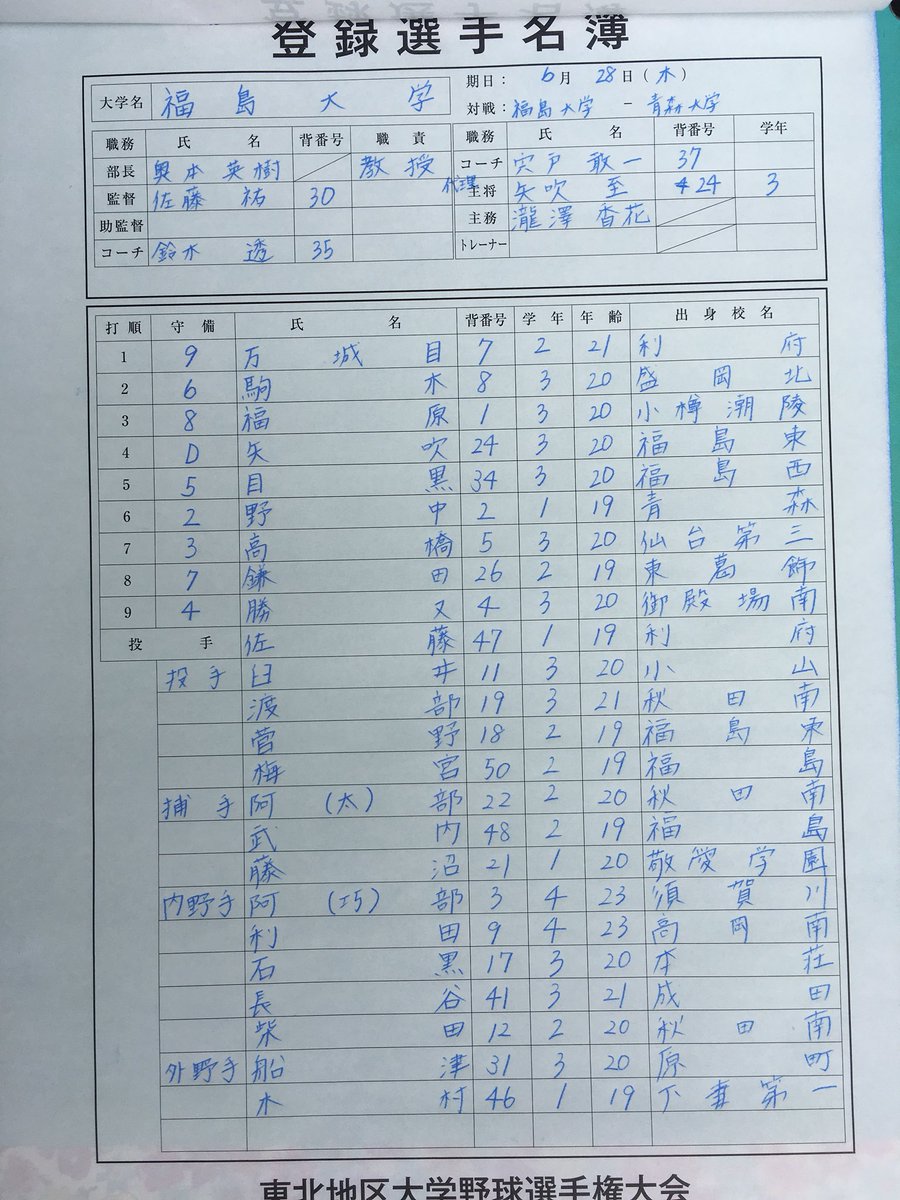 登録選手名簿
大学名 福島大学 期日: 6月 28日(木)
対戦: 福島大学 - 青森大学
職務 氏名 背番号 職責 職務 氏名 背番号 学年
部長 奥本英樹 教授 コーチ 宍戸敢一 37
監督 佐藤祐 30 代理 主将 矢吹至 24 3
助監督 主務 瀧澤杏花
コーチ 鈴木透 35 トレーナー
打順 守備 氏名 背番号 学年 年齢 出身校名
1 9 万城目 7 2 21 利府
2 6 駒木 8 3 20 盛岡北
3 8 福原 1 3 20 小樽潮陵
4 D 矢吹 24 3 20 福島東
5 5 目黒 34 3 20 福島西
6 2 野中 2 1 19 青森
7 3 高橋 5 3 20 仙台第三
8 7 鎌田 26 2 19 東葛飾
9 4 勝又 4 3 20 御殿場南
投手 佐藤 47 1 19 利府
投手 臼井 11 3 20 小山
渡部 19 3 21 秋田南
菅野 18 2 19 福島東
梅宮 50 2 19 福島
捕手 阿(太)部 22 2 20 秋田南
武内 48 2 19 福島
藤沼 21 1 20 敬愛学園
内野手 阿(巧)部 3 4 23 須賀川
利田 9 4 23 高岡南
石黒 17 3 20 本荘
長谷 41 3 21 成田
柴田 12 2 20 秋田南
外野手 船津 31 3 20 原町
木村 46 1 19 下妻第一
東北地区大学野球選手権大会